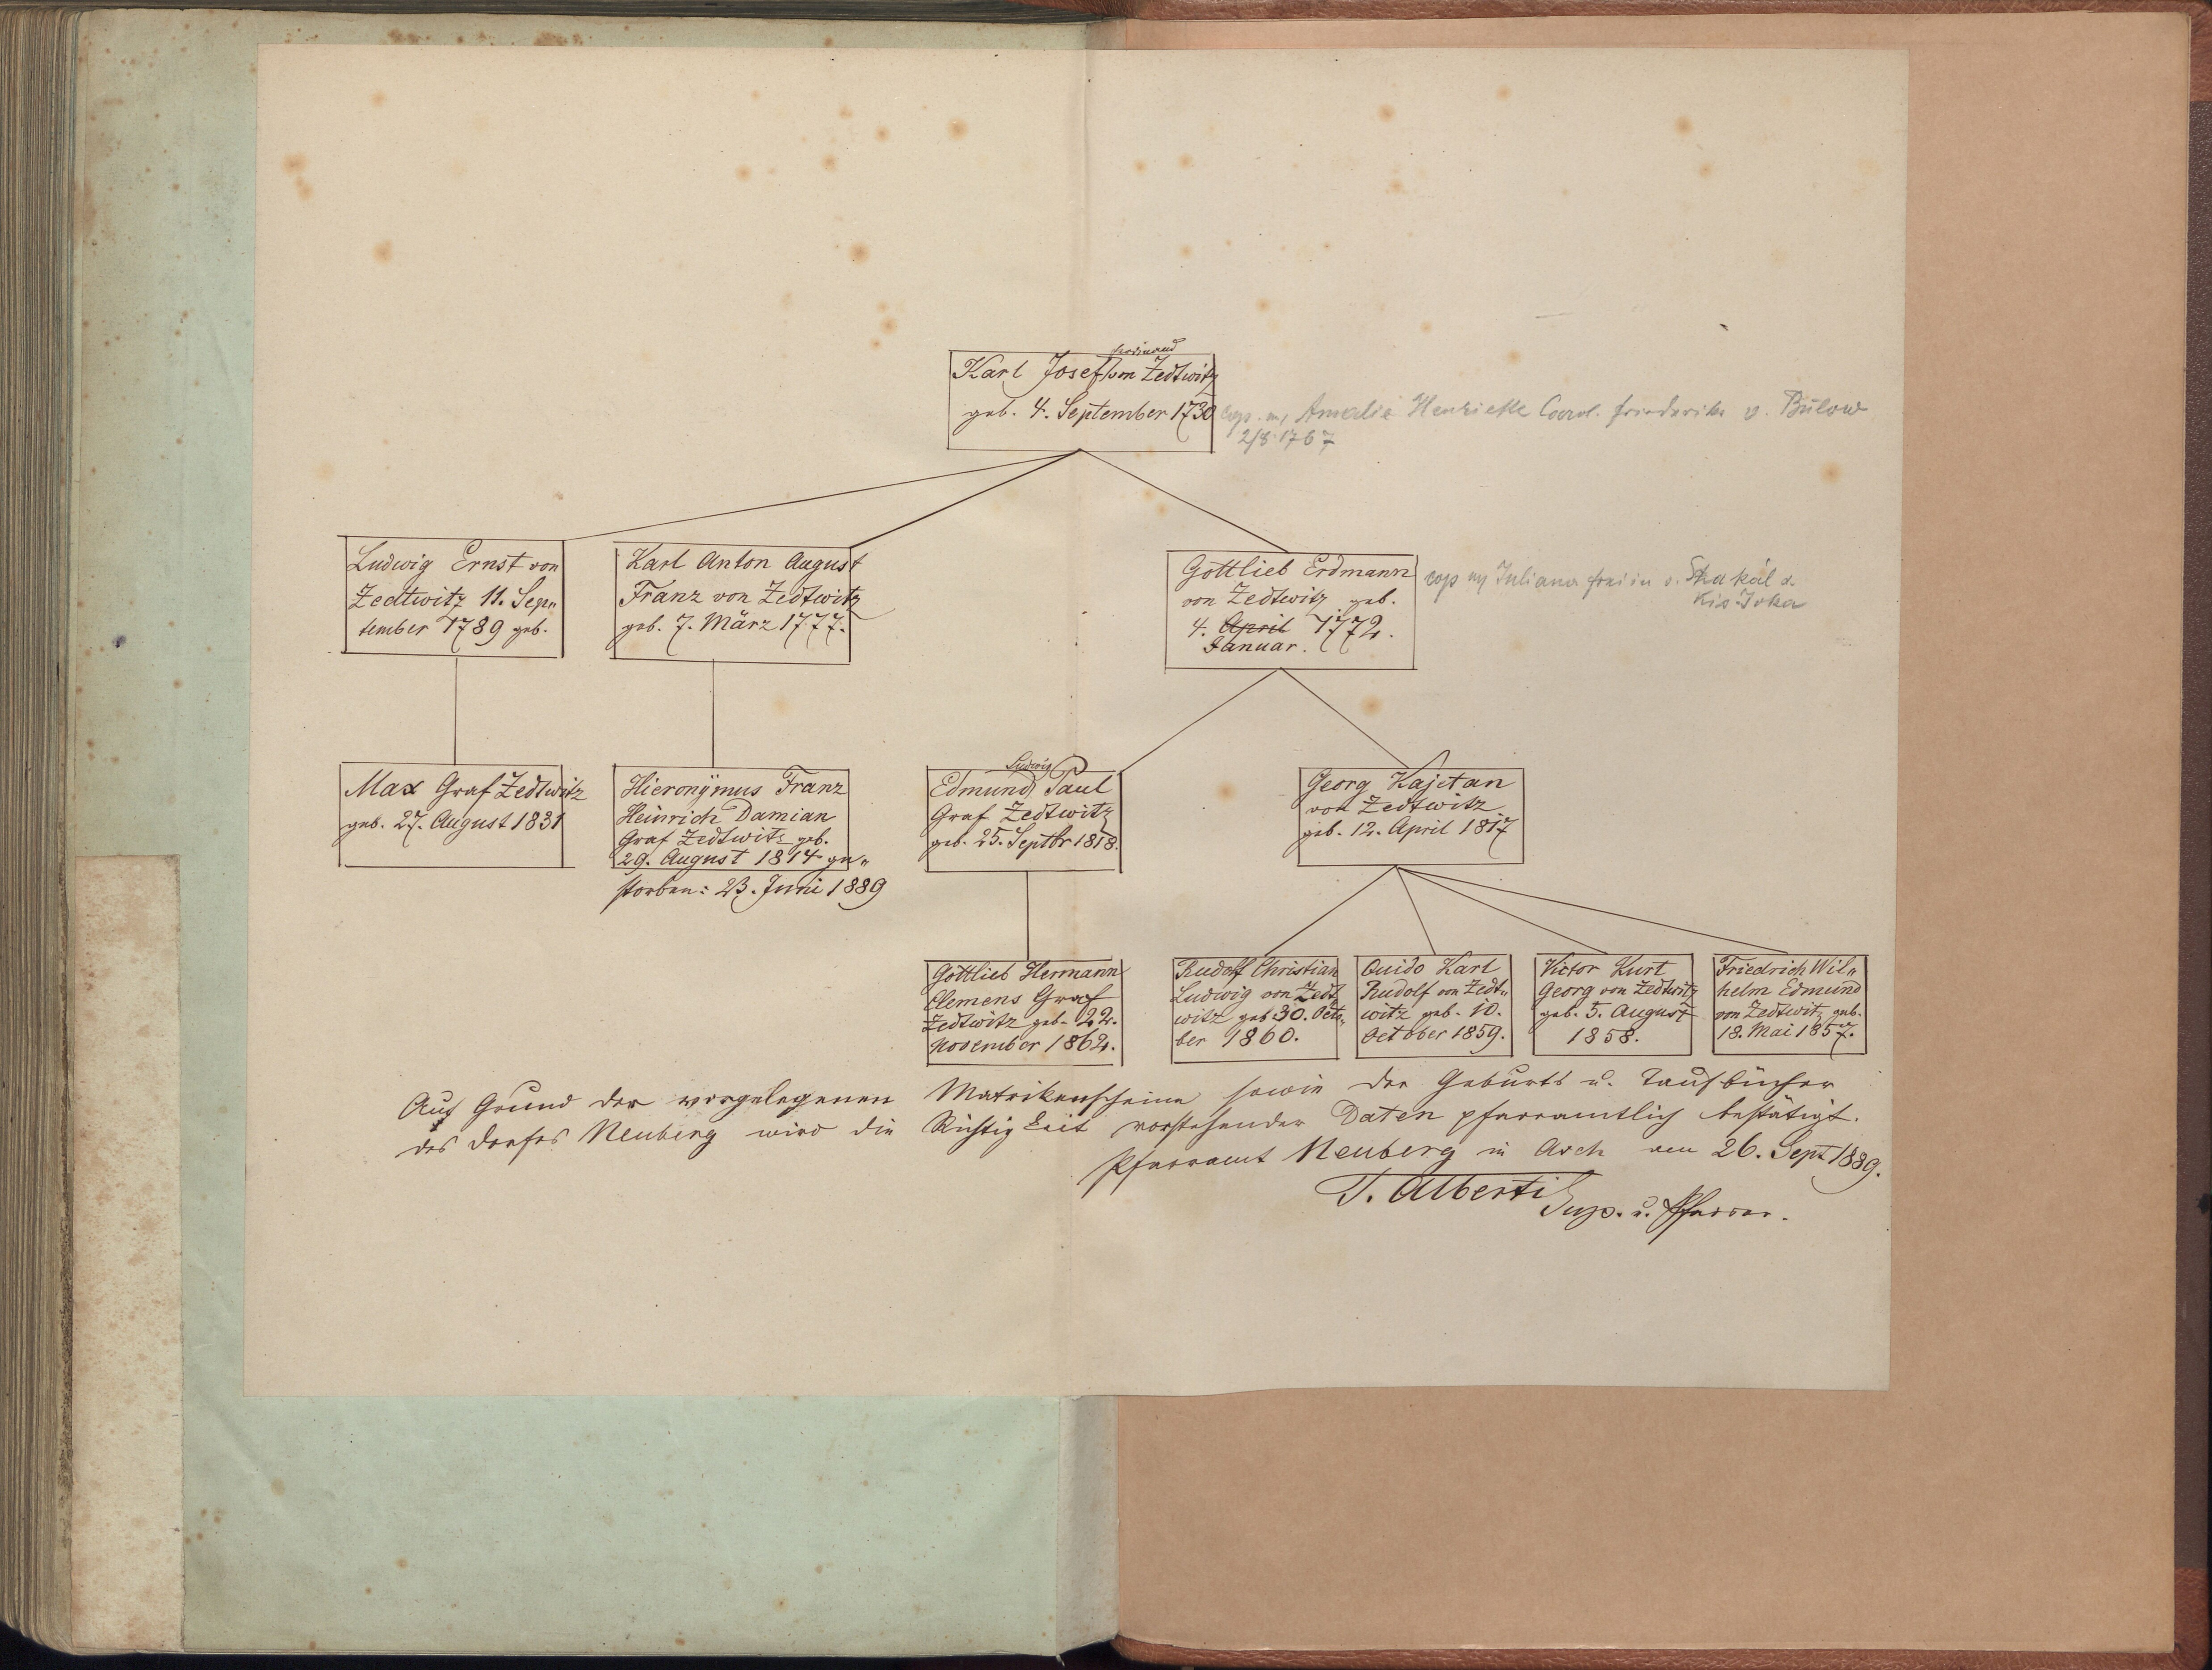 ferdinand
Karl Josef von Zedtwitz
geb. 4. September 1730
cop. m, Amalie Henriette Carol. friederike v. Bülow
2/8 1767
Ludwig Ernst von
Zedtwitz 11. Sep„
tember 1789 geb.
Karl Anton August
Franz von Zedtwitz
geb. 7. März 1777.
Gottlieb Erdmann
von Zedtwitz geb.
4. April 1772.
Januar.
cop m, Juliana freiin v.
Kis Joka
Max Graf Zedtwitz
geb. 27. August 1831
Hieronÿmus Franz
Heinrich Damian
Graf Zedtwitz geb.
29. August 1814 ge„
storben: 23. Juni 1889
Ludwig
Edmund Paul
Graf Zedtwitz
geb. 25. Septbr 1818.
Georg Kajetan
von Zedtwitz
geb. 12. April 1817
Gottlieb Hermann
Clemens Graf
Zedtwitz geb. 22.
November 1862.
Rudolf Christian
Ludwig von Zedt„
witz geb 30. Octo„
ber 1860.
Quido Karl
Rudolf von Zedt„
witz geb. 10.
October 1859.
Victor Kurt
Georg von Zedtwitz
geb. 5. August
1858.
Friedrich Wil„
helm Edmund
von Zedtwitz geb.
18. Mai 1857.
Auf Grund der vorgelegenen Matrikenscheine sowie der Geburts u. Taufbücher
des Dorfes Neuberg wird die Richtigkeit vorstehender Daten pfarramtlich bestätigt.
Pfarramt Neuberg in Asch am 26. Sept 1889.
T. Alberti
Sup. u. Pfarrer.